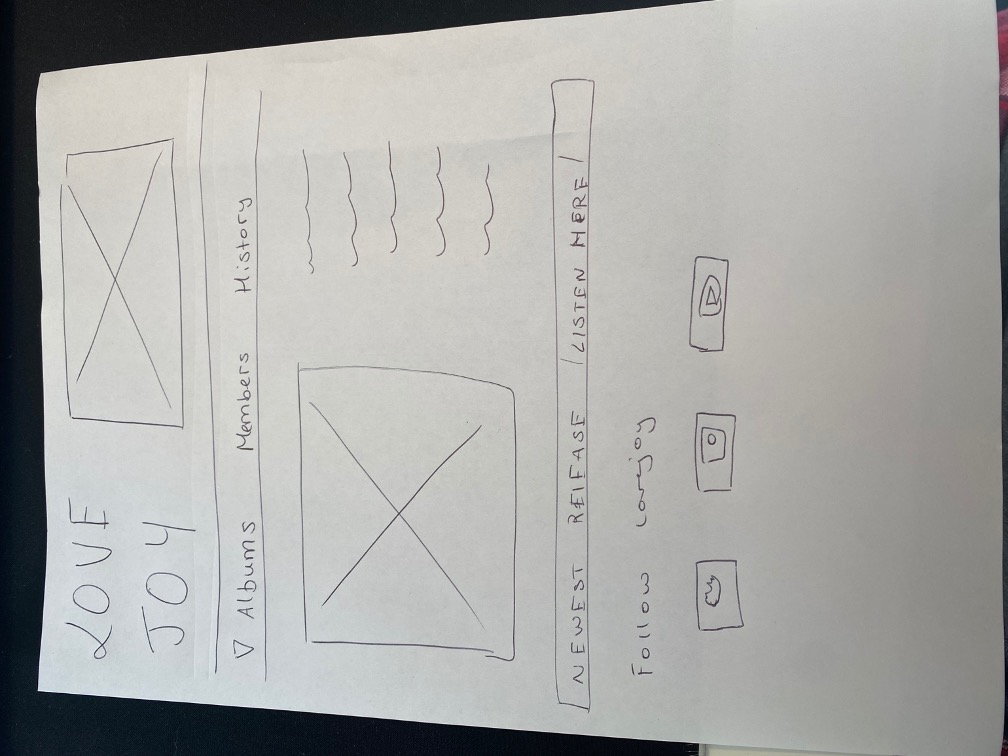 LOVE
JOY
Albums Members History
NEWEST RELEASE /LISTEN HERE/
Follow Lovejoy